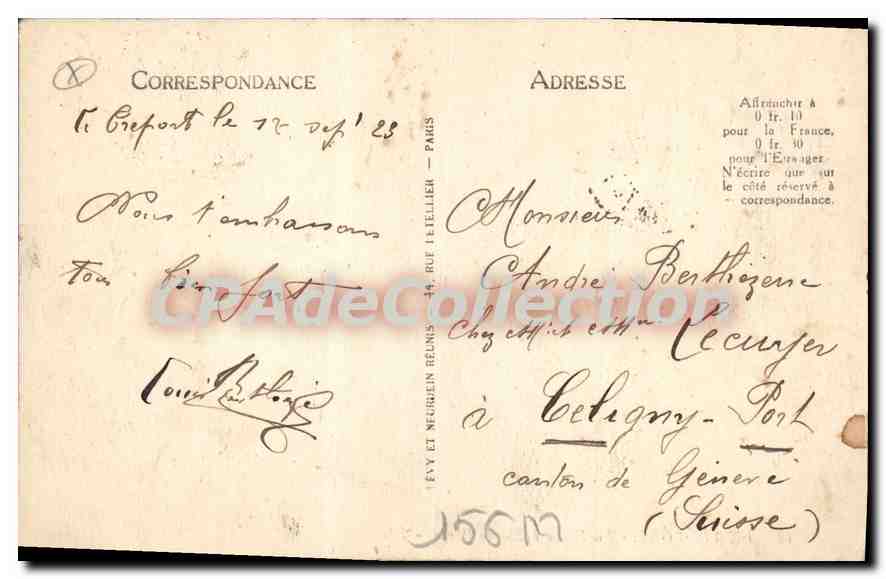 CORRESPONDANCE
Le Tréport le 12 sept 23
Nous t'embrassons
tous bien fort
Louis
LEVY ET NEURDEIN RÉUNIS 44, RUE LETELLIER — PARIS
ADRESSE
Affranchir à
0 fr. 10
pour la France,
0 fr. 30
pour l'Etranger
N'écrire que sur
le côté réservé à
correspondance.
Monsieur
André Berthezene
chez Mr et Mme Lecuyer
à Céligny - Port
canton de Génève
(Suisse)
156 M
CPAdeCollection